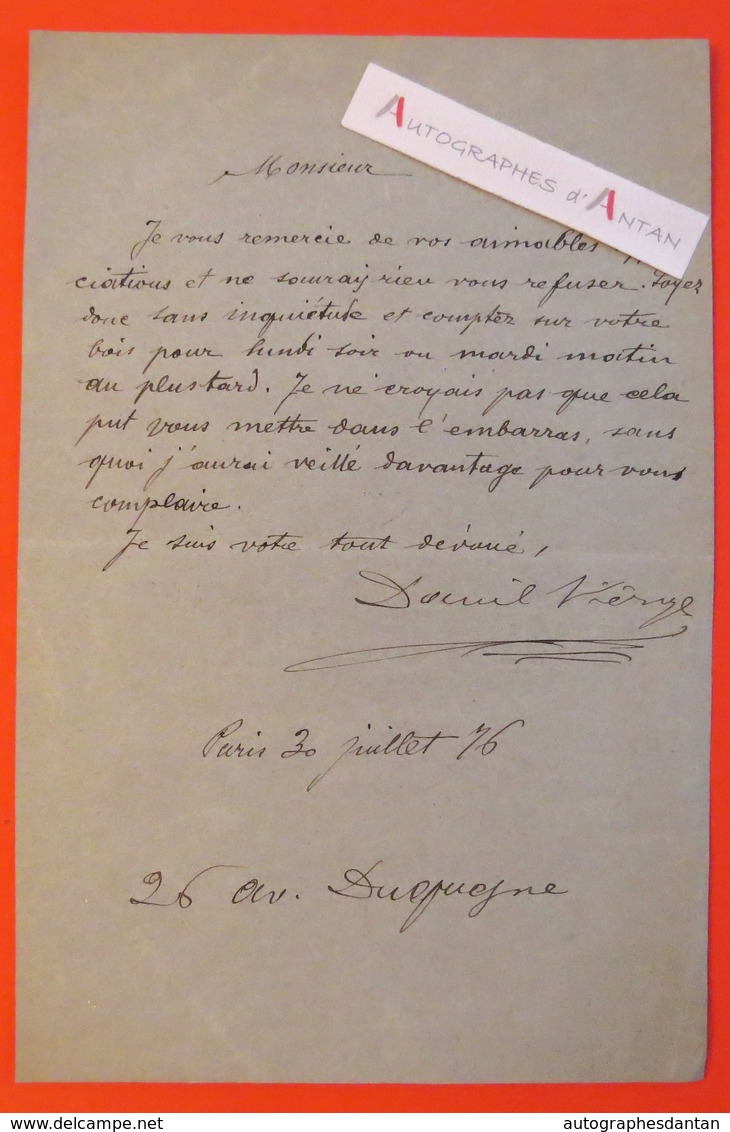 AUTOGRAPHES d'ANTAN
Monsieur
Je vous remercie de vos aimables
ciations et ne sauray rien vous refuser. Soyez
donc sans inquiétude et comptez sur votre
bois pour lundi soir ou mardi matin
au plustard. Je ne croyais pas que cela
put vous mettre dans l'embarras, sans
quoi j'aurai veillé davantage pour vous
complaire.
Je suis votre tout dévoué,
Daniel Vierge
Paris 30 juillet 76
26 av. Duquesne
autographesdantan